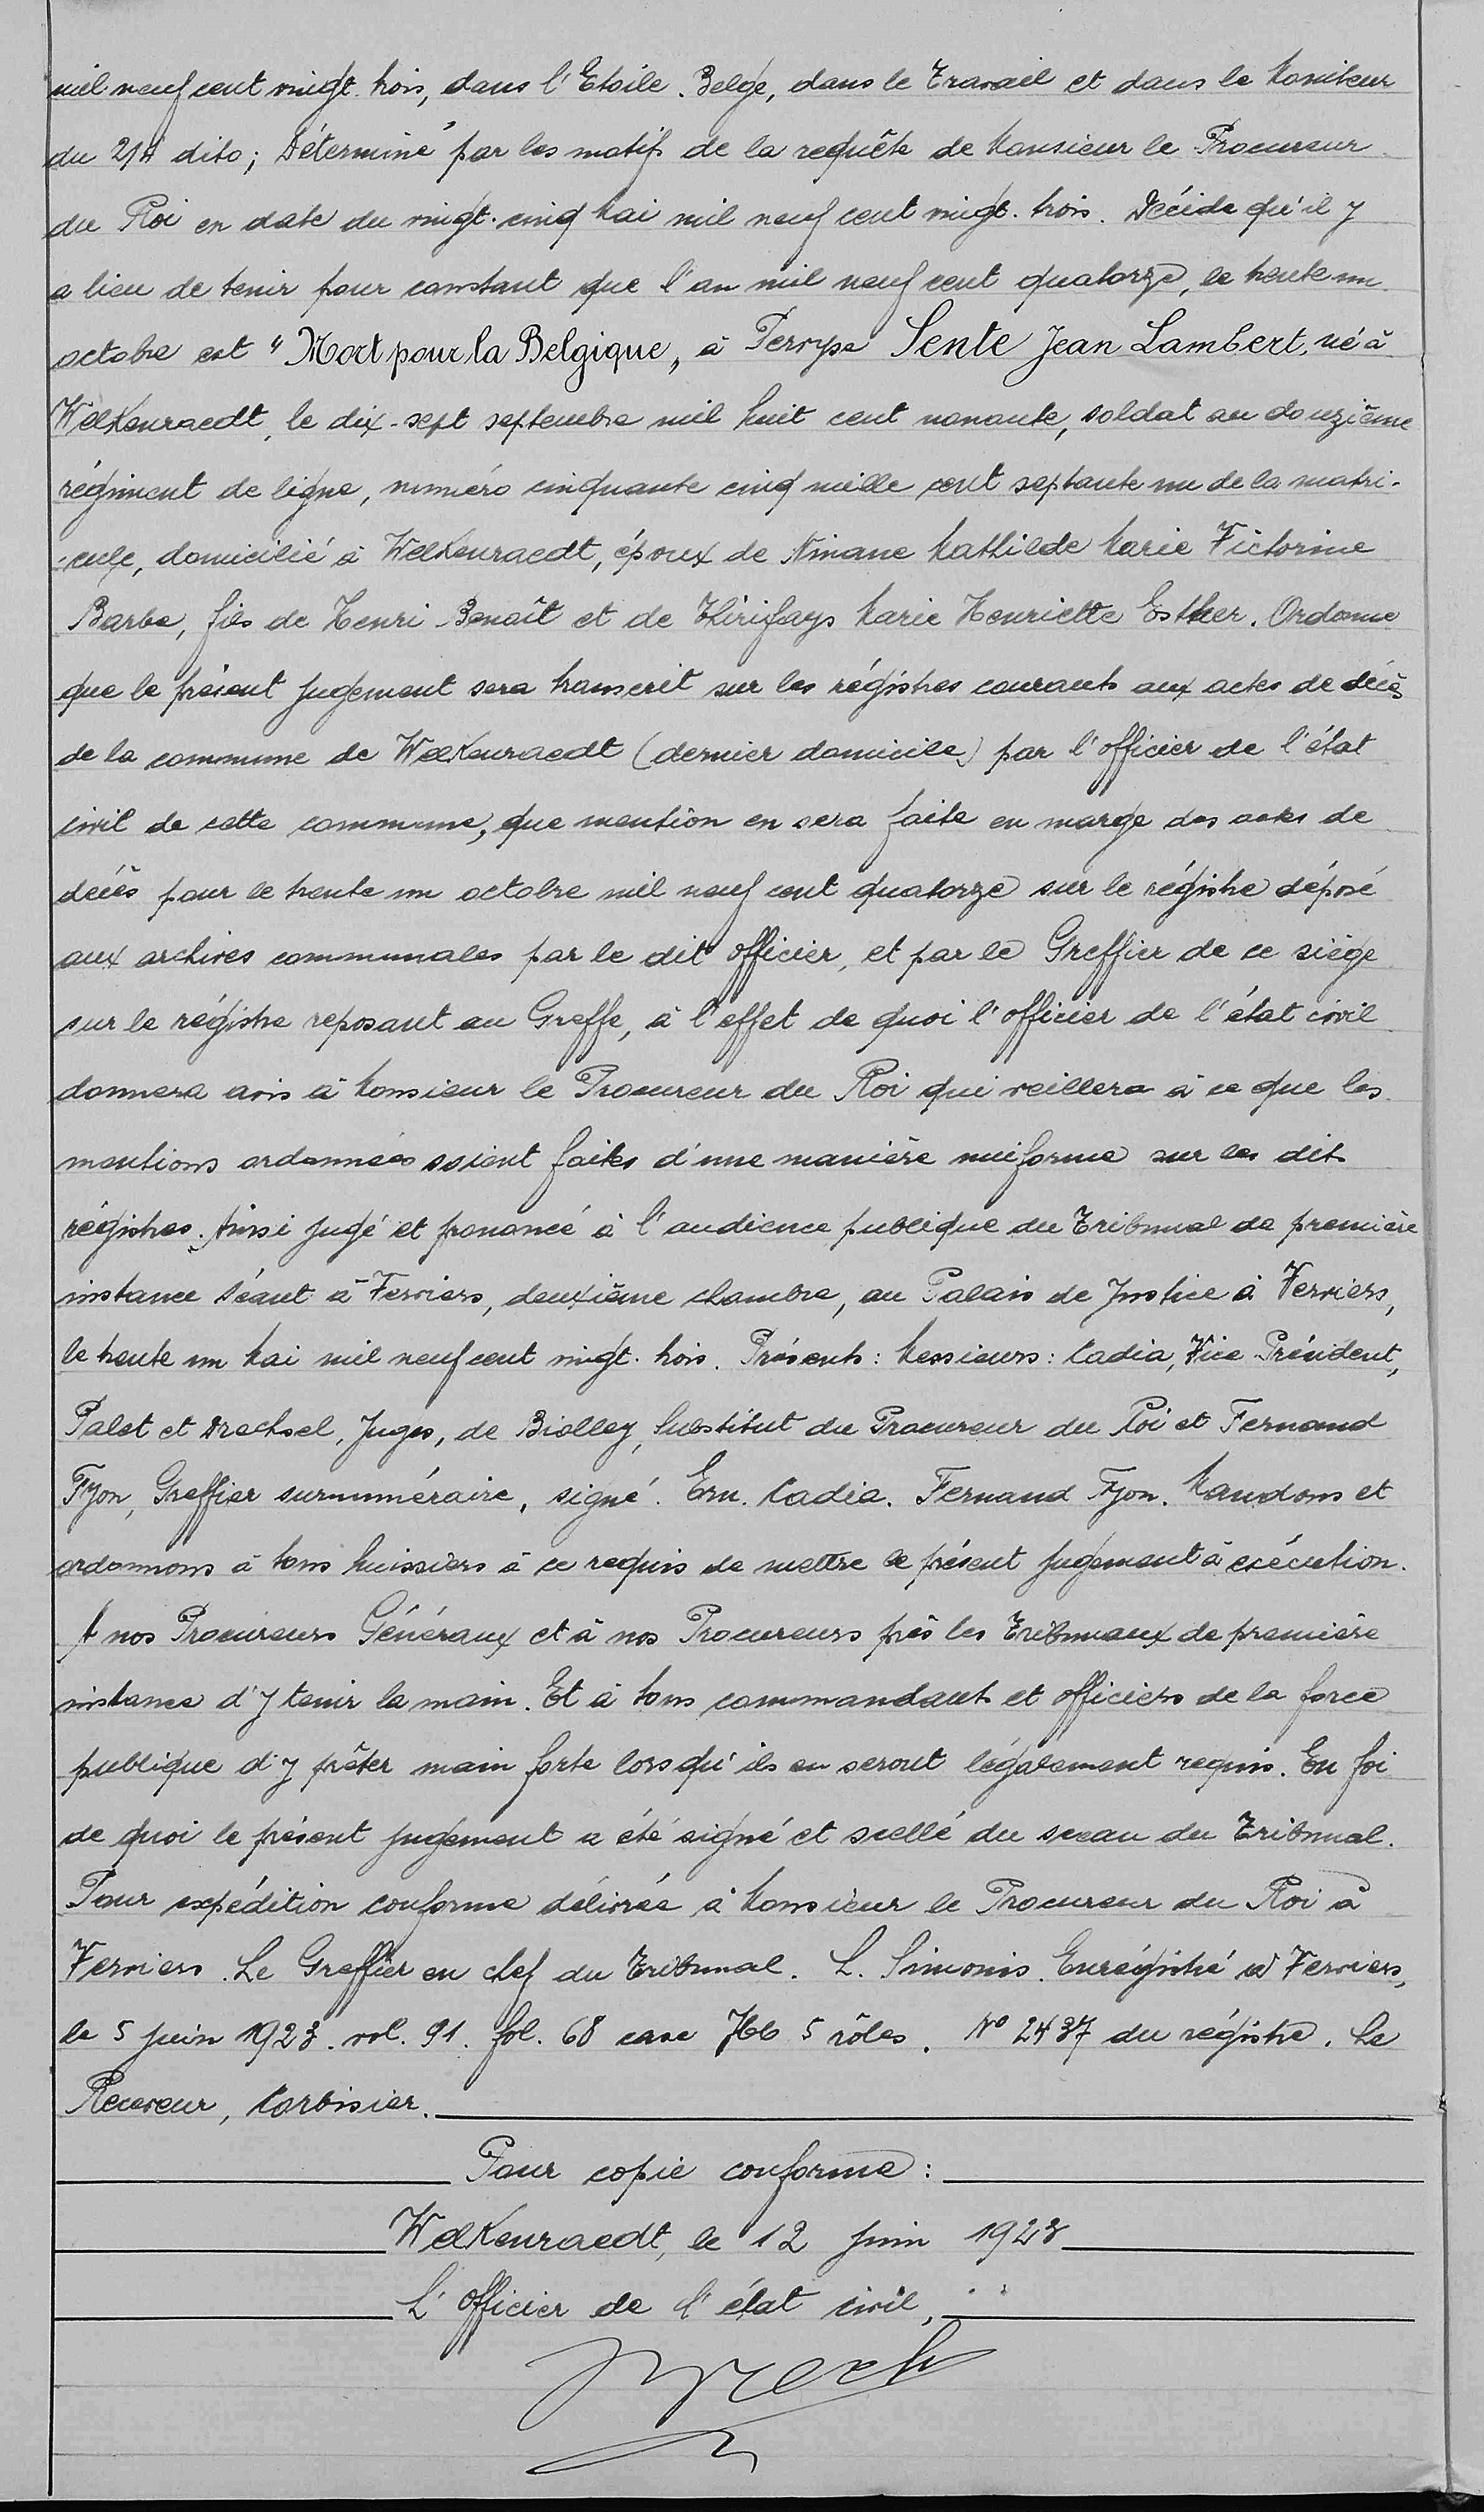 mil neuf cent vingt-trois, dans l'Etoile Belge, dans le Travail et dans le Moniteur
du 24 dito; Déterminé par les motifs de la requête de Monsieur le Procureur
du Roi en date du vingt-cinq Mai mil neuf cent vingt-trois. Décide qu'il y
a lieu de tenir pour constant que l'an mil neuf cent quatorze, le trente un
octobre est "Mort pour la Belgique„ à Pervyse Sente Jean Lambert, né à
Welkenraedt, le dix-sept septembre mil huit cent nonante, soldat au douzième
régiment de ligne, numéro cinquante cinq mille cent septante un de la matri-
-cule, domicilié à Welkenraedt, époux de Ninane Mathilde Marie Victorine
Barbe, fils de Henri Benoît et de Thirifays Marie Henriette Esther. Ordonne
que le présent jugement sera transcrit sur les régistres courants aux actes de décès
de la commune de Welkenraedt (dernier domicile) par l'officier de l'état
civil de cette commune, que mention en sera faite en marge des actes de
décès pour le trente un octobre mil neuf cent quatorze sur le régistre déposé
aux archives communales par le dit officier, et par le Greffier de ce siège
sur le régistre reposant au Greffe, à l'effet de quoi l'officier de l'état civil
donnera avis à Monsieur le Procureur du Roi qui veillera à ce que les
mentions ordonnées soient faites d'une manière uniforme sur les dits
régistres. Ainsi jugé et prononcé à l'audience publique du Tribunal de première
instance séant à Verviers, deuxième chambre, au Palais de Justice à Verviers,
le trente un Mai mil neuf cent vingt-trois. Présents: Messieurs: Cadia, Vice Président,
Palet et Drechsel, Juges, de Biolley, Substitut du Procureur du Roi et Fernand
Fyon, Greffier surnuméraire, signé. Ern. Cadia. Fernand Fyon. Mandons et
ordonnons à tous huissiers à ce requis de mettre le présent jugement à exécution.
A nos Procureurs Généraux et à nos Procureurs près les Tribunaux de première
instance d'y tenir la main. Et à tous commandants et officiers de la force
publique d'y prêter main forte lorsqu'ils en seront légalement requis. En foi
de quoi le présent jugement a été signé et scellé du sceau du Tribunal.
Pour expédition conforme délivrée à Monsieur le Procureur du Roi à
Verviers. Le Greffier en chef du Tribunal. L. Simonis. Enrégistré à Verviers,
le 5 juin 1923. vol. 91. fol. 68 case 5 rôles. N° 2437 du régistre. Le
Receveur, Corbisier.
Pour copie conforme:
Welkenraedt, le 12 juin 1923
L'officier de l'état civil,